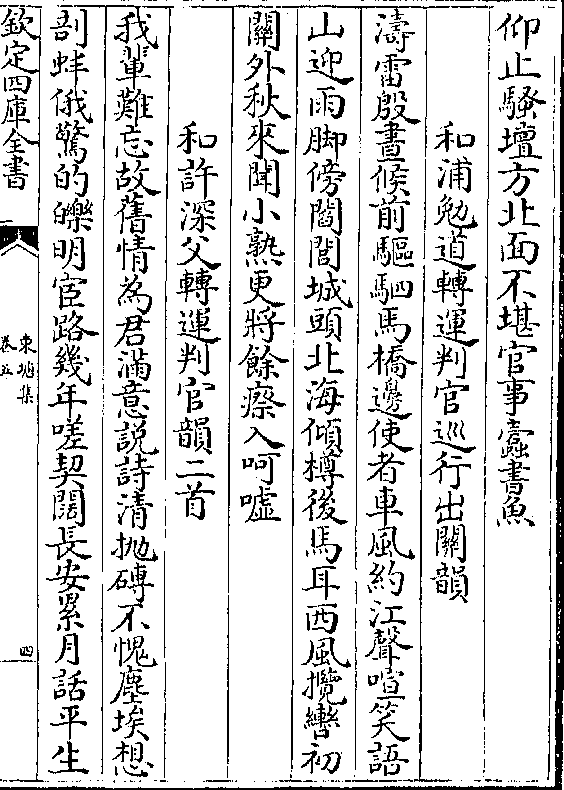 仰止騷壇方北面不堪官事蠹書魚
和浦勉道轉運判官巡行出關韻
濤雷殷晝候前驅駟馬橋邊使者車風約江聲喧笑語
山迎雨脚傍閭閻城頭北海傾樽後馬耳西風攬轡初
關外秋來聞小熟更將餘瘵入呵嘘
和許深父轉運判官韻二首
我輩難忘故舊情為君滿意説詩清抛磚不愧塵埃想
剖蚌俄驚的皪明宦路幾年嗟契闊長安累月話平生
欽定四庫全書
東塘集
卷五
四